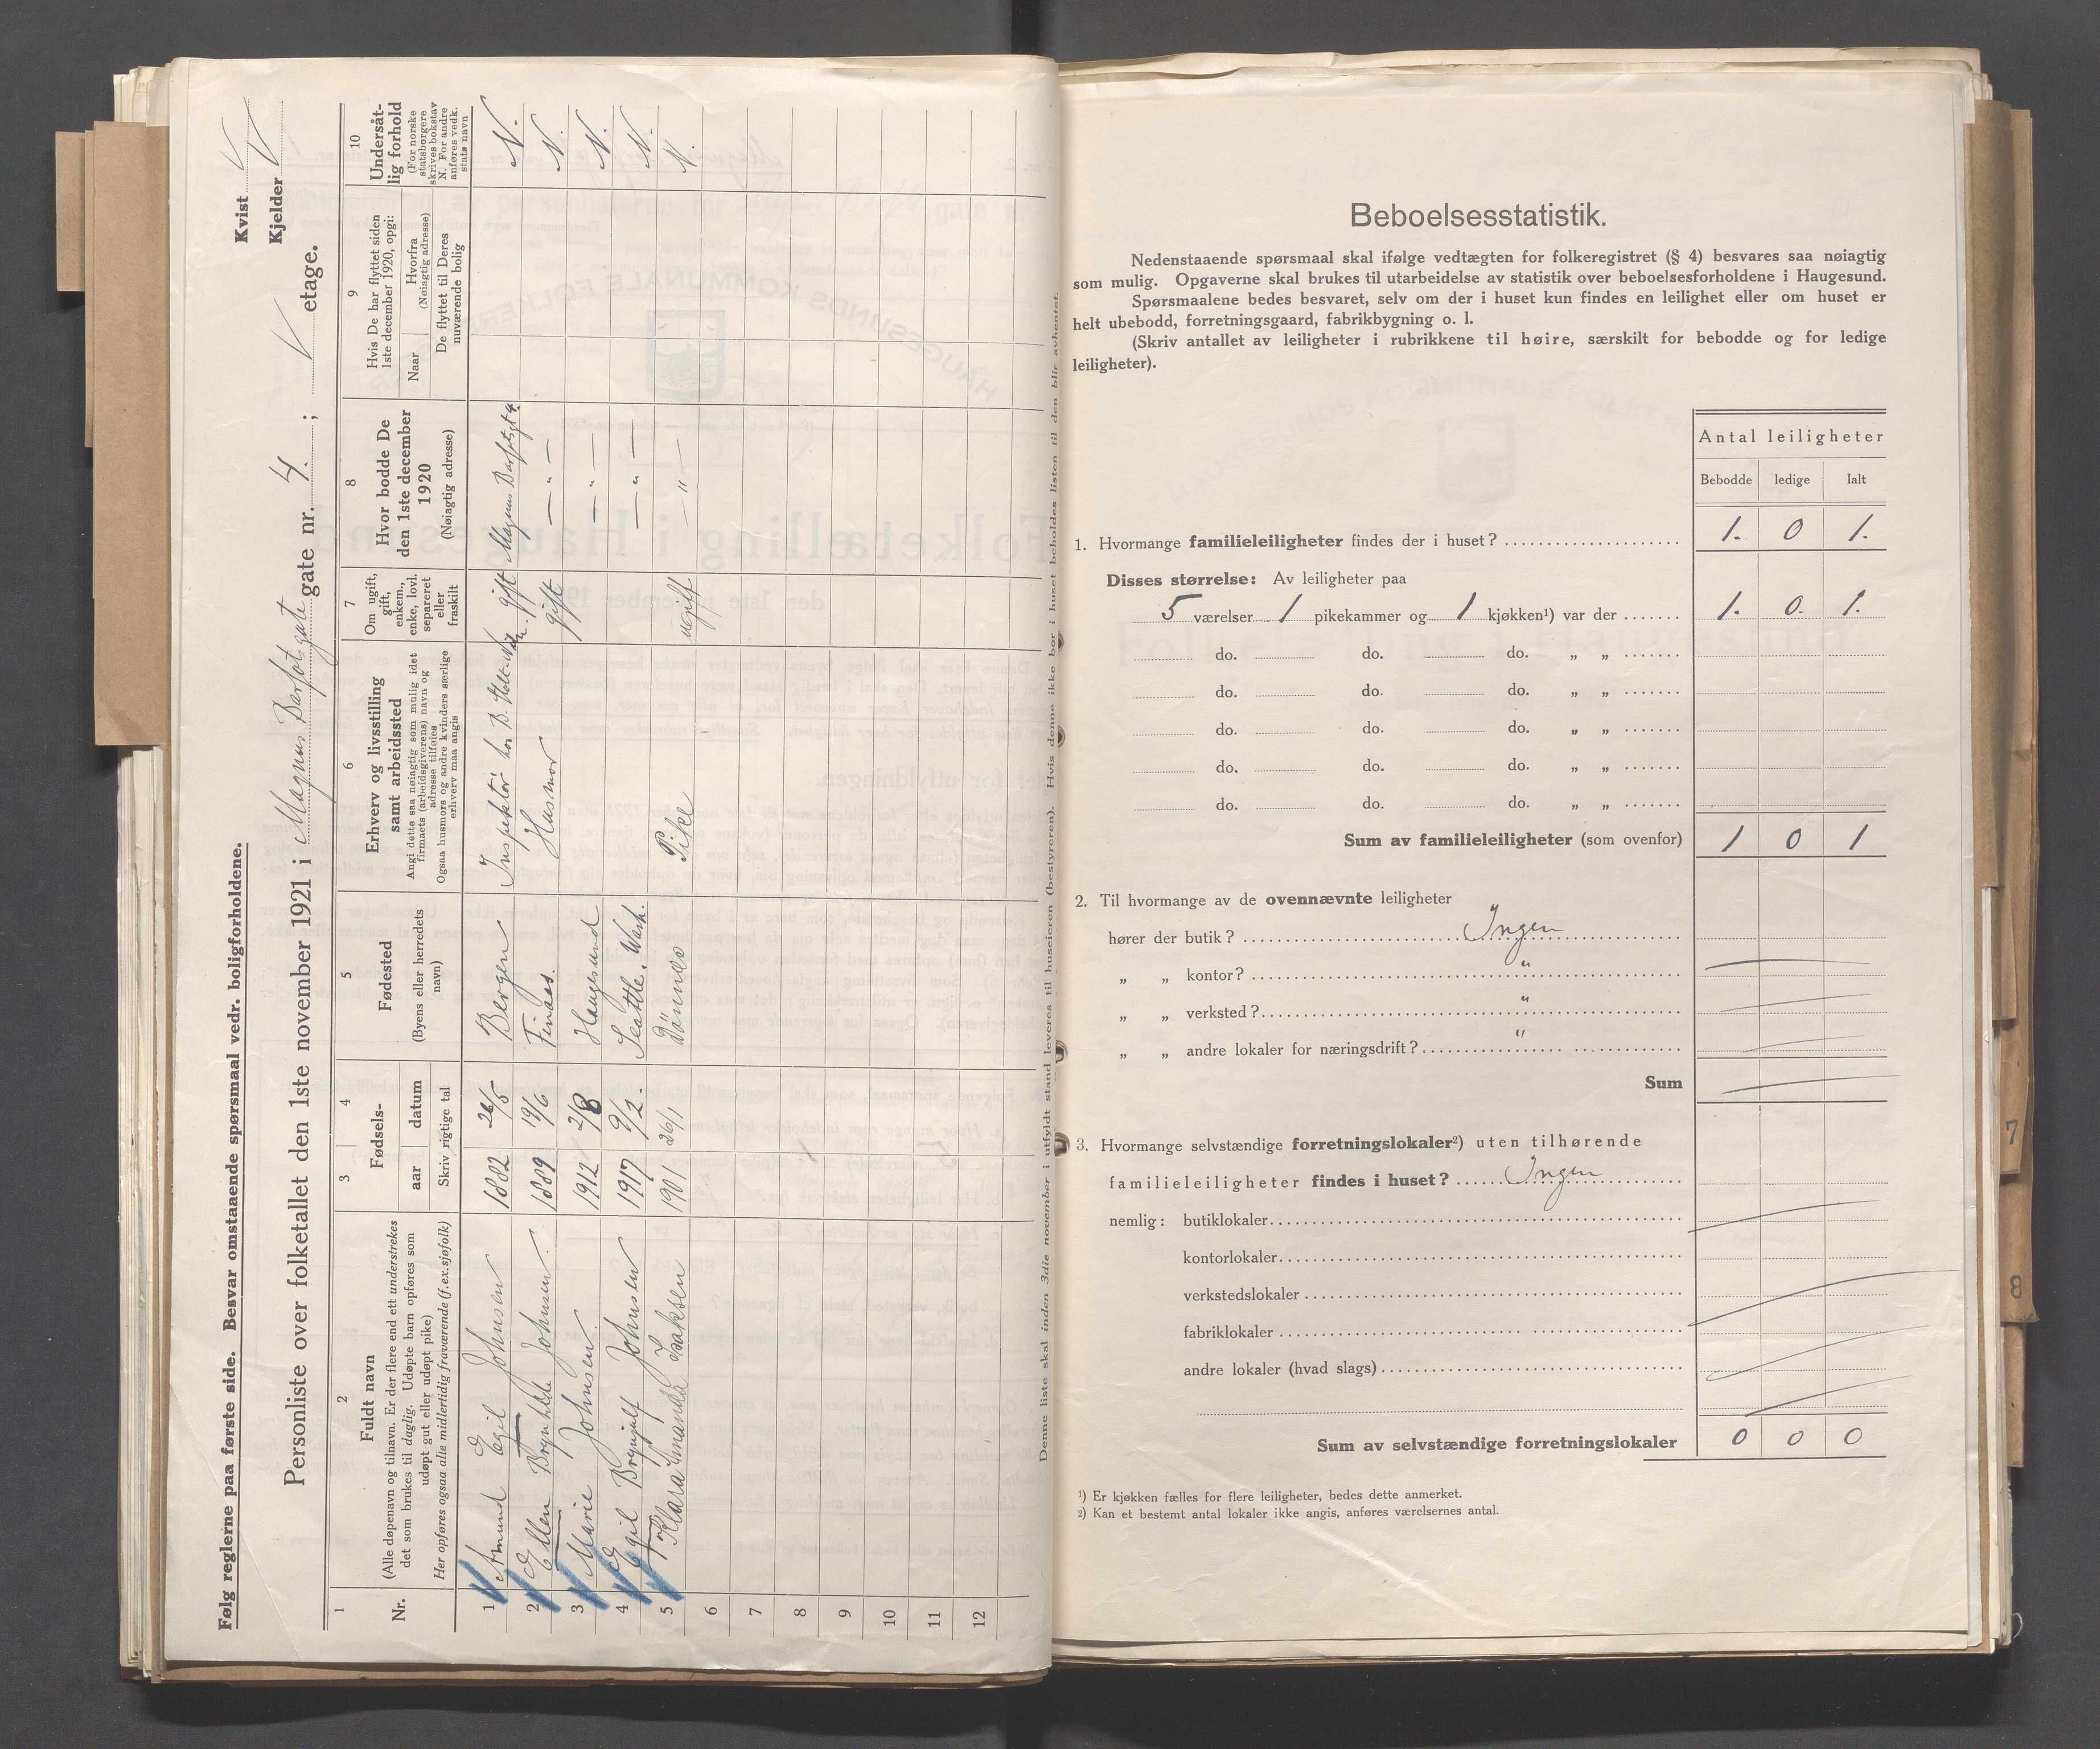 Følg reglerne paa første side. Besvar omstaaende spørsmaal vedr. boligforholdene.
Kvist V
Kjelder V
Personliste over folketallet den 1ste november 1921 i Magnus Barfotsgate gate nr. 4. ; V etage.
1 2 3 4 5 6 7 8 9 10
Nr.
Fuldt navn
(Alle døpenavn og tilnavn. Er der flere end ett understrekes
det som brukes til daglig. Udøpte barn opføres som
udøpt gut eller udøpt pike)
Her opføres ogsaa alle midlertidig fraværende (f.ex. sjøfolk)
Fødsels-
aar datum
Skriv rigtige tal
Fødested
(Byens eller herredets
navn)
Erhverv og livsstilling
samt arbeidssted
Angi dette saa nøiagtig som mulig idet
firmaets (arbeidsgiverens) navn og
adresse tilføies
Ogsaa husmors og andre kvinders særlige
erhverv maa angis
Om ugift,
gift,
enkem.,
enke, lovl.
separeret
eller
fraskilt
Hvor bodde De
den 1ste december
1920
(Nøiagtig adresse)
Hvis De har flyttet siden
1ste december 1920, opgi:
Naar
Hvorfra
(Nøiagtig adresse)
De flyttet til Deres
nuværende bolig
Undersåt-
lig forhold
(For norske
statsborgere
skrives bokstav
N. For andre
anføres vedk.
stats navn
1 Amund Egil Johnsen 1882 26/5 Bergen Inspektör hos B. Stolt-N gift Magnus Barfotsgt 4 N.
2 Ellen Brynhilde Johnsen 1889 19/6 Finaas. Husmor gift — " — N.
3 Marie Johnsen 1912 2/8 Haugesund — " — N.
4 Egil Brynjulf Johnsen 1917 9/2. Seattle. Wash. — " — N.
5 Klara Amanda Isaksen 1901 26/1 Dönnes Pike ugift — " — N.
6
7
8
9
10
11
12
Denne liste skal inden 3die november i utfyldt stand leveres til huseieren (bestyreren). Hvis denne ikke bor i huset beholdes listen til den blir avhentet.
Beboelsesstatistik.
Nedenstaaende spørsmaal skal ifølge vedtægten for folkeregistret (§ 4) besvares saa nøiagtig
som mulig. Opgaverne skal brukes til utarbeidelse av statistik over beboelsesforholdene i Haugesund.
Spørsmaalene bedes besvaret, selv om der i huset kun findes en leilighet eller om huset er
helt ubebodd, forretningsgaard, fabrikbygning o. l.
(Skriv antallet av leiligheter i rubrikkene til høire, særskilt for bebodde og for ledige
leiligheter).
Antal leiligheter
Bebodde ledige Ialt
1. Hvormange familieleiligheter findes der i huset? 1. 0 1.
Disses størrelse: Av leiligheter paa
5 værelser 1 pikekammer og 1 kjøkken¹) var der 1. 0. 1.
do. do. do. „ „
do. do. do. „ „
do. do. do. „ „
do. do. do. „ „
do. do. do. „ „
Sum av familieleiligheter (som ovenfor) 1 0 1
2. Til hvormange av de ovennævnte leiligheter
hører der butik? Ingen
„ „ kontor? "
„ „ verksted? "
„ „ andre lokaler for næringsdrift? "
Sum
3. Hvormange selvstændige forretningslokaler²) uten tilhørende
familieleiligheter findes i huset? Ingen
nemlig: butiklokaler
kontorlokaler
verkstedslokaler
fabriklokaler
andre lokaler (hvad slags)
Sum av selvstændige forretningslokaler 0 0 0
¹) Er kjøkken fælles for flere leiligheter, bedes dette anmerket.
²) Kan et bestemt antal lokaler ikke angis, anføres værelsernes antal.
7
8